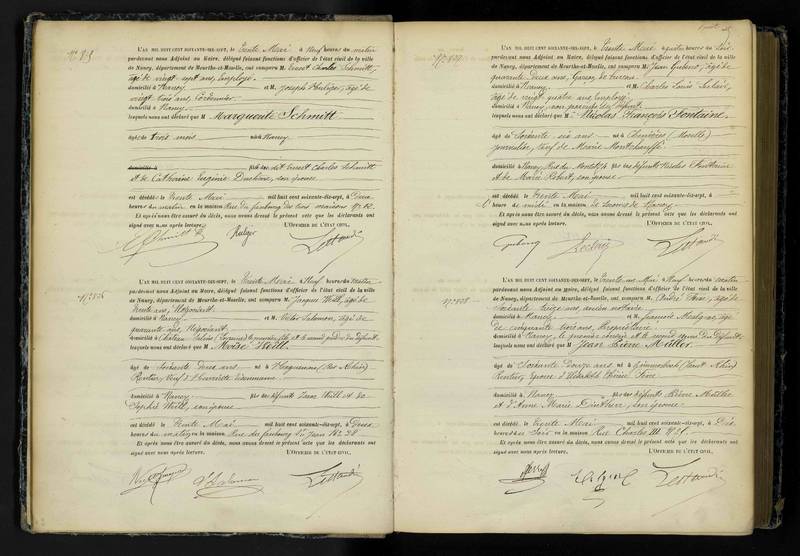 N° 825
L'AN MIL HUIT CENT SOIXANTE-DIX-SEPT, le Trente Mai à Neuf heures du matin
pardevant nous Adjoint au Maire, délégué faisant fonctions d'officier de l'état civil de la ville
de Nancy, département de Meurthe-et-Moselle, ont comparu M. Ernest Charles Schmitt,
âgé de vingt sept ans, Employé,
domicilié à Nancy et M. Joseph
vingt trois ans, Cordonnier
domicilié à Nancy
lesquels nous ont déclaré que Marguerite Schmitt
âgée de trois mois née à Nancy
domicilié à fille de dit Ernest Charles Schmitt
et de Catherine Virginie Duchêne, son épouse
est décédée le Trente Mai mil huit cent soixante-dix-sept, à Deux
heures du matin en la maison Rue du faubourg des trois maisons N° 62.
Et après nous être assuré du décès, nous avons dressé le présent acte que les déclarants ont
signé avec nous après lecture. L'OFFICIER DE L'ÉTAT CIVIL,
E Schmitt
N° 826
L'AN MIL HUIT CENT SOIXANTE-DIX-SEPT, le Trente Mai à Neuf heures du matin
pardevant nous Adjoint au Maire, délégué faisant fonctions d'officier de l'état civil de la ville
de Nancy, département de Meurthe-et-Moselle, ont comparu M. Jacques Weill, âgé de
trente ans, Négociant
domicilié à Nancy et M. Victor Salomon, âgé de
quarante ans, Négociant
domicilié à Château Salins (Lorraine) le premier fils et le second gendre du défunt
lesquels nous ont déclaré que Moïse Weill
âgé de Soixante Deux ans né à Haguenau (Bas Rhin)
Rentier, Veuf d'Henriette
domicilié à Nancy fils des défunts Isaac Weill et de
Sophie Weill, son épouse
est décédé le Trente Mai mil huit cent soixante-dix-sept, à Deux
heures du matin en la maison Rue du faubourg St Jean N° 28
Et après nous être assuré du décès, nous avons dressé le présent acte que les déclarants ont
signé avec nous après lecture. L'OFFICIER DE L'ÉTAT CIVIL,
N° 827
L'AN MIL HUIT CENT SOIXANTE-DIX-SEPT, le Trente Mai à quatre heures du soir
pardevant nous Adjoint au Maire, délégué faisant fonctions d'officier de l'état civil de la ville
de Nancy, département de Meurthe-et-Moselle, ont comparu M. Jean âgé de
quarante Deux ans, Garçon de bureau
domicilié à Nancy et M. Charles Louis Leclair,
âgé de vingt quatre ans, employé
domicilié à Nancy, non parents du défunt
lesquels nous ont déclaré que Nicolas François Fontaine
âgé de Soixante six ans né à (Moselle)
journalier, veuf de Marie
domicilié à Nancy fils des défunts Nicolas Fontaine
et de Marie Robert, son épouse
est décédé le Trente Mai mil huit cent soixante-dix-sept, à
heure de midi en la maison de Secours de Nancy
Et après nous être assuré du décès, nous avons dressé le présent acte que les déclarants ont
signé avec nous après lecture. L'OFFICIER DE L'ÉTAT CIVIL,
Leclair
N° 828
L'AN MIL HUIT CENT SOIXANTE-DIX-SEPT, le Trente un Mai à Neuf heures du matin
pardevant nous Adjoint au Maire, délégué faisant fonctions d'officier de l'état civil de la ville
de Nancy, département de Meurthe-et-Moselle, ont comparu M. André âgé de
Soixante Treize ans, ancien notaire
domicilié à Nancy et M. François âgé
de cinquante trois ans, Propriétaire
domicilié à Nancy, le premier cousin et le second ami du défunt
lesquels nous ont déclaré que Jean Pierre Müller
âgé de Soixante Douze ans né à (Haut Rhin)
Rentier, époux d'Elisabeth Thérèse
domicilié à Nancy fils des défunts Pierre Müller
et d'Anne Marie son épouse
est décédé le Trente Mai mil huit cent soixante-dix-sept, à Dix
heures du Soir en la maison Rue Charles III N°
Et après nous être assuré du décès, nous avons dressé le présent acte que les déclarants ont
signé avec nous après lecture. L'OFFICIER DE L'ÉTAT CIVIL,